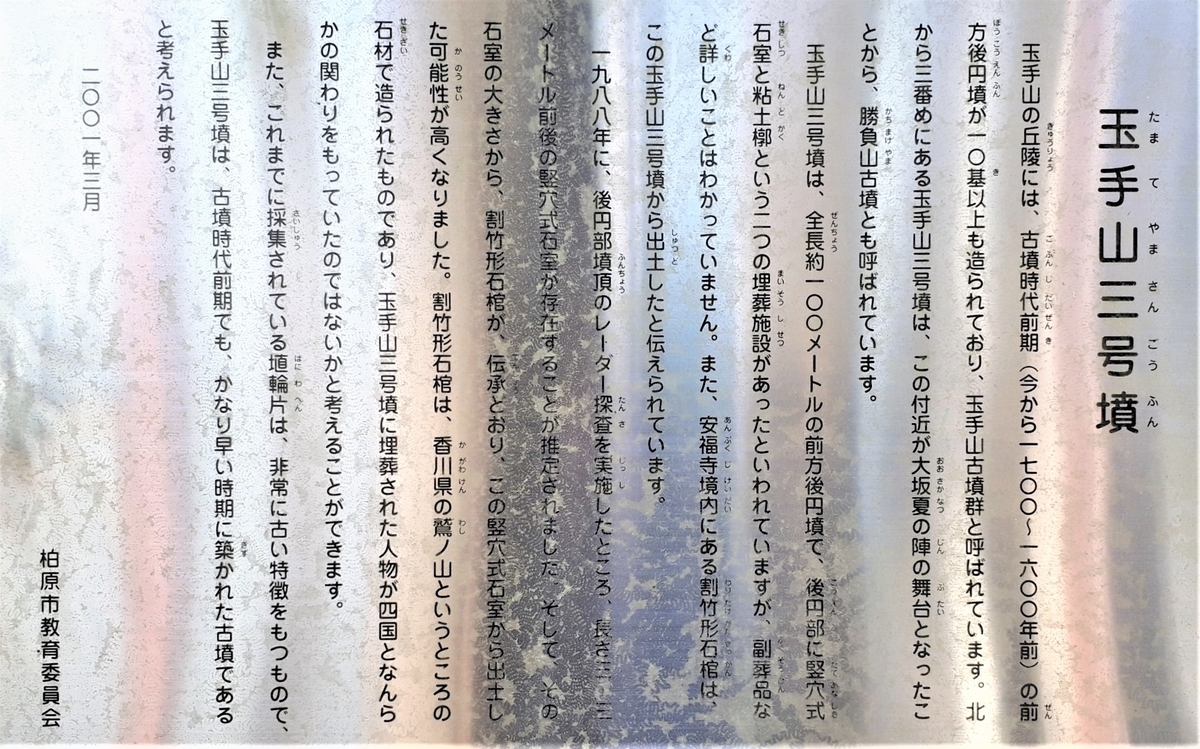 玉手山三号墳
玉手山の丘陵には、古墳時代前期（今から一七〇〇～一六〇〇年前）の前
方後円墳が一〇基以上も造られており、玉手山古墳群と呼ばれています。北
から三番めにある玉手山三号墳は、この付近が大坂夏の陣の舞台となったこ
とから、勝負山古墳とも呼ばれています。
玉手山三号墳は、全長約一〇〇メートルの前方後円墳で、後円部に竪穴式
石室と粘土槨という二つの埋葬施設があったといわれていますが、副葬品な
ど詳しいことはわかっていません。また、安福寺境内にある割竹形石棺は、
この玉手山三号墳から出土したと伝えられています。
一九八八年に、後円部墳頂のレーダー探査を実施したところ、長さ三
メートル前後の竪穴式石室が存在することが推定されました。そして、その
石室の大きさから、割竹形石棺が、伝承とおり、この竪穴式石室から出土し
た可能性が高くなりました。割竹形石棺は、香川県の鷲ノ山というところの
石材で造られたものであり、玉手山三号墳に埋葬された人物が四国となんら
かの関わりをもっていたのではないかと考えることができます。
また、これまでに採集されている埴輪片は、非常に古い特徴をもつもので、
玉手山三号墳は、古墳時代前期でも、かなり早い時期に築かれた古墳である
と考えられます。
二〇〇一年三月
柏原市教育委員会